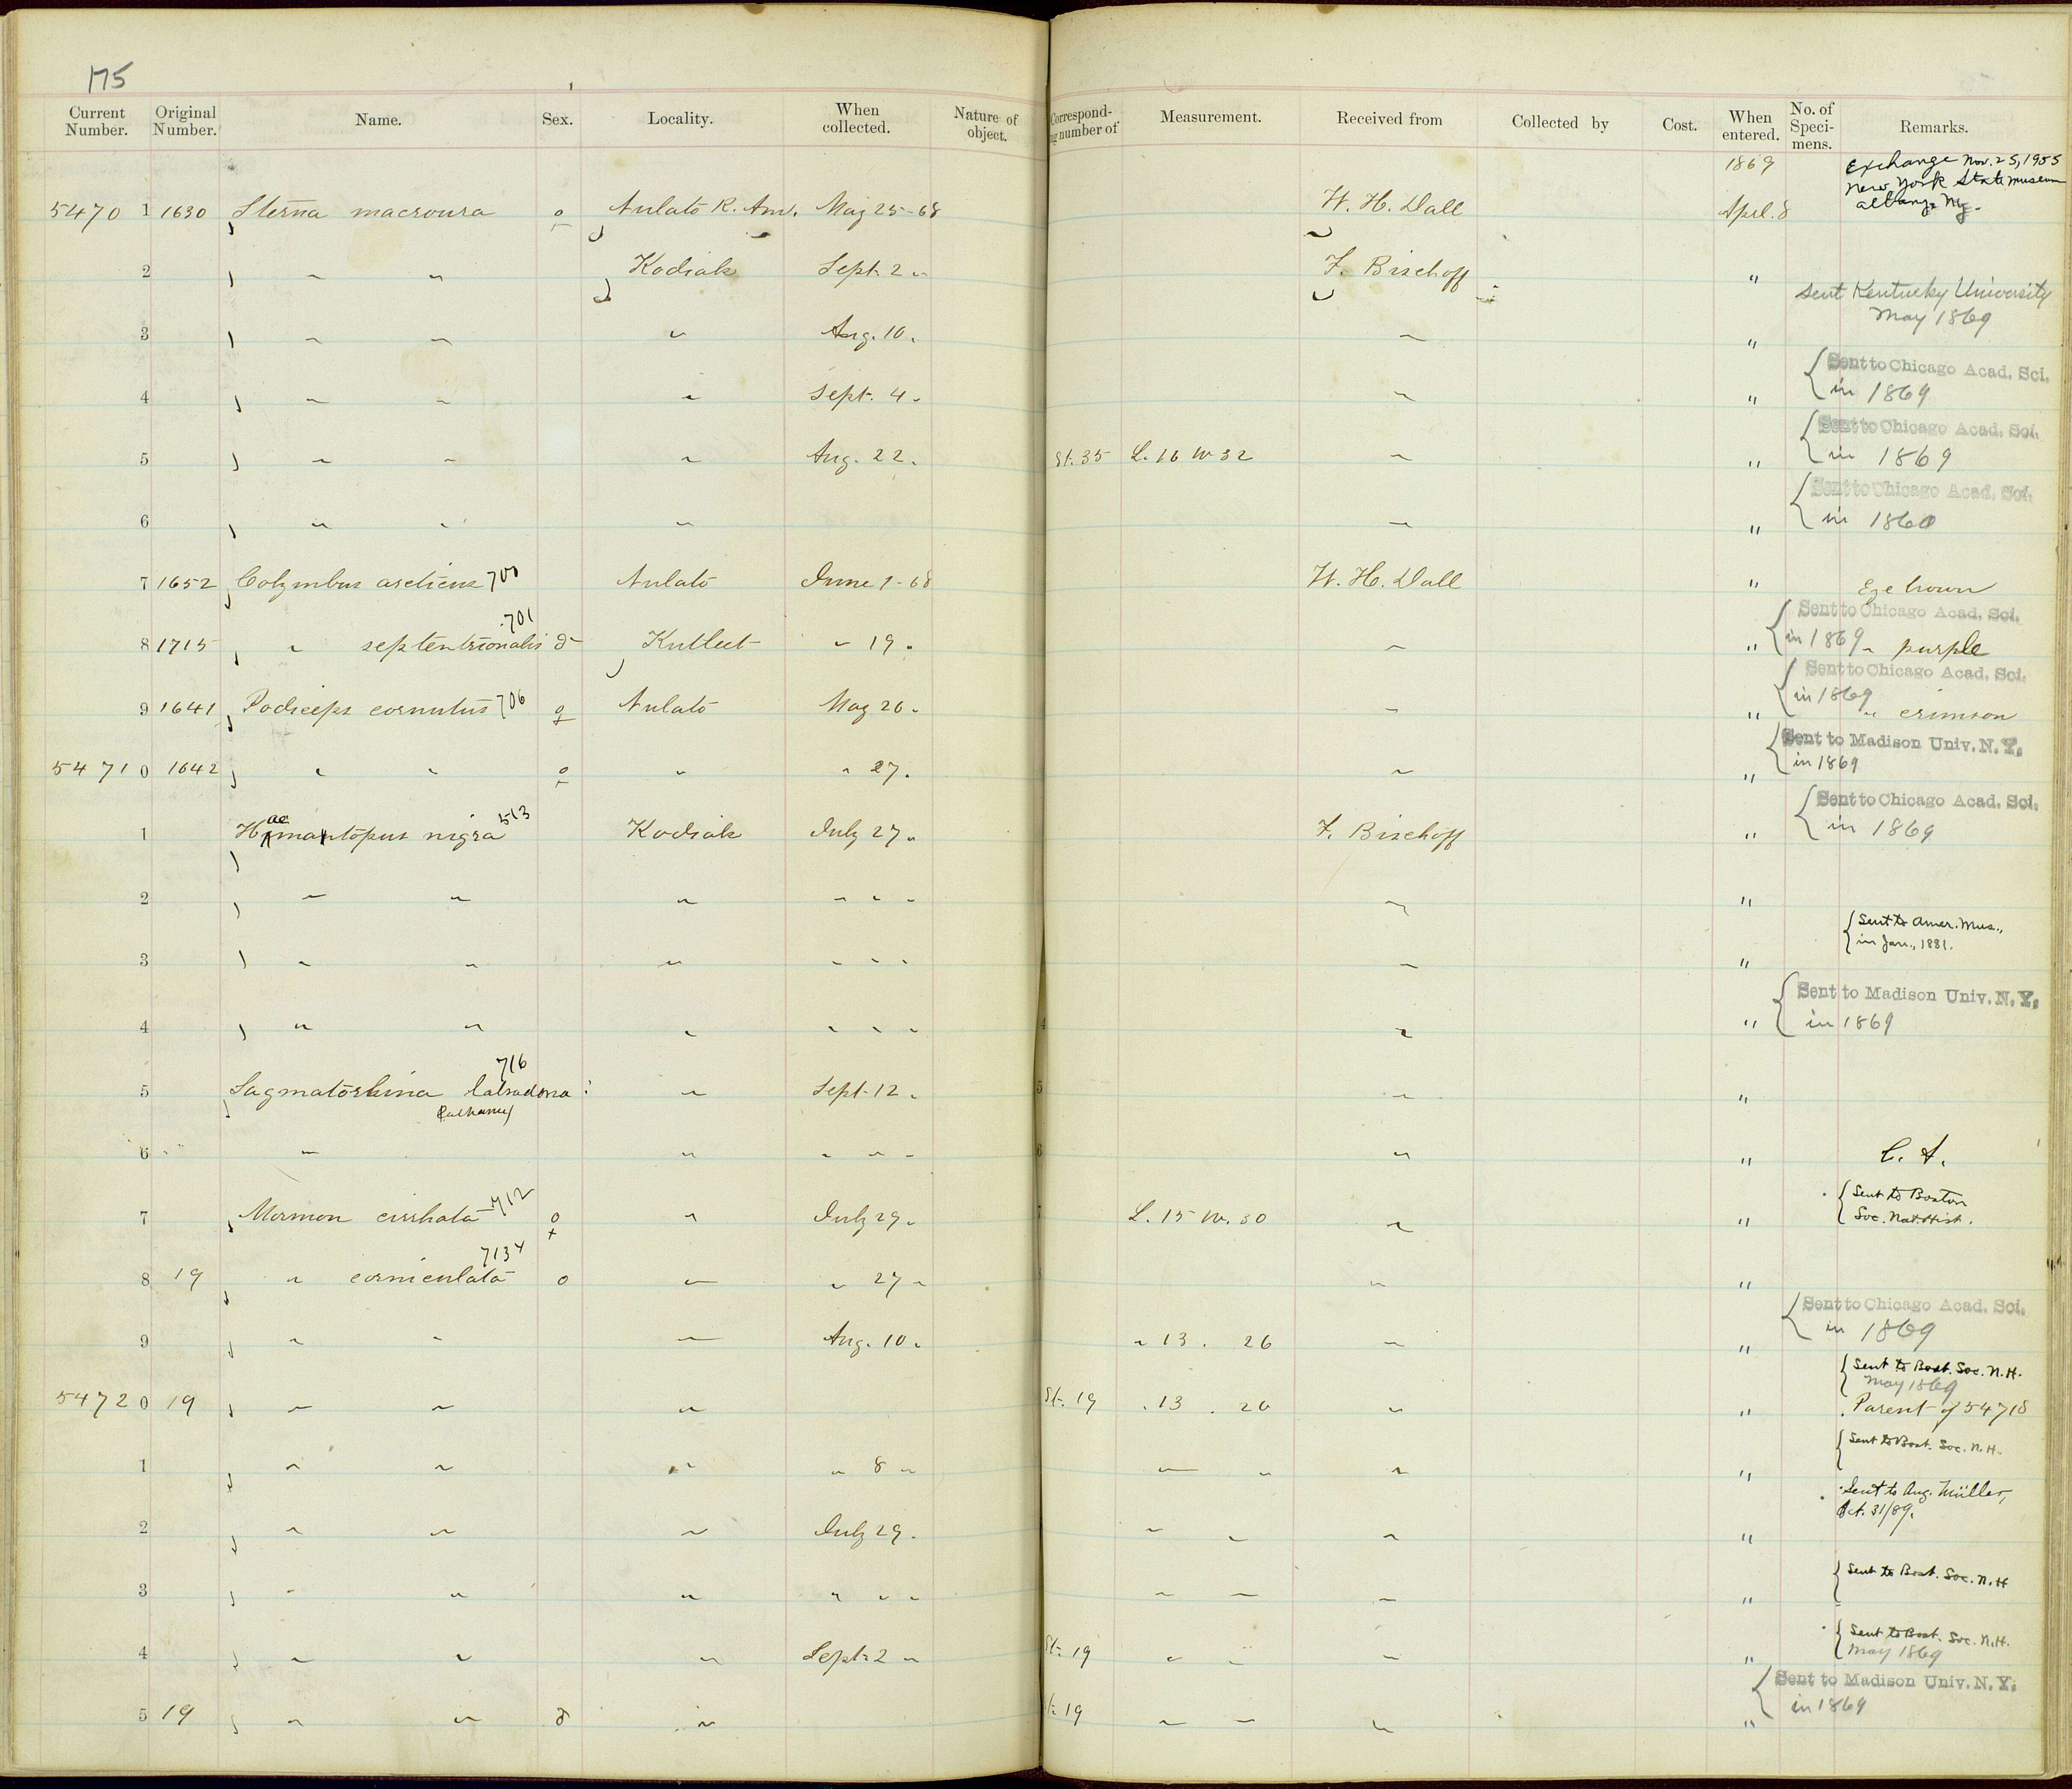 175
Current Number. Original Number. Name. Sex. Locality. When collected. Nature of object. Correspond- ng number of Measurement. Received from Collected by Cost. When entered. No. of Speci- mens. Remarks.
1869 Exchange Nov. 25, 1955
New York State Museum
5470 1 1630 Sterna macroura ♀ Nulato R. Am. May 25-68 W. H. Dall Apl. 8 Albany NY.
2 " " Kodiak Sept. 2 " F. Bischoff "
Sent Kentucky University
May 1869
3 " " " Aug. 10 " " "
Sent to Chicago Acad. Sci.
4 " " " Sept. 4 " " " in 1869
Sent to Chicago Acad. Sci.
5 " " " Aug. 22 " St. 35 L. 16 W 32 " " in 1869
Sent to Chicago Acad. Sci.
6 " " " " " in 1860
7 1652 Colymbus arcticus 700 Nulato June 1-68 W. H. Dall " Eye brown
701 Sent to Chicago Acad. Sci.
8 1715 " septentrionalis ♂ Kutleet " 19 " " " in 1869 " purple
Sent to Chicago Acad. Sci.
in 1869
9 1641 Podiceps cornutus 706 ♀ Nulato May 26 " " " " crimson
Sent to Madison Univ. N. Y.
5471 0 1642 " " ♀ " " 27 " " " in 1869
513 Sent to Chicago Acad. Sci.
1 Haematopus nigra Kodiak July 27 " F. Bischoff " in 1869
2 " " " " " " " "
Sent to Amer. Mus.,
in Jan., 1881.
3 " " " " " " " "
Sent to Madison Univ. N. Y.
4 " " " " " " " " in 1869
716
5 Sagmatorhina labradoria : " Sept. 12 " " "
6 " " " " " " "
712 Sent to Boston
7 Mormon cirrhata ♀ " July 29 " L. 15 W. 30 " " Soc. Nat. Hist.
7134
8 19 " corniculata o " " 27 " " "
Sent to Chicago Acad. Sci.
9 " " " Aug. 10 " " 13 . 26 " " in 1869
Sent to Bost. Soc. N. H.
May 1869
5472 0 19 " " " St. 19 . 13 . 26 " " Parent of 54718
Sent to Bost. Soc. N. H.
1 " " " " 8 " " " " "
Sent to Aug. Müller,
Oct. 31/89.
2 " " " July 29 " " " " "
Sent to Bost. Soc. N. H
3 " " " " " " " " " "
Sent to Bost. Soc. N. H.
May 1869
4 " " " Sept. 2 " St. 19 " " " "
Sent to Madison Univ. N. Y.
in 1869
5 19 " " ♂ " t. 19 " " " "